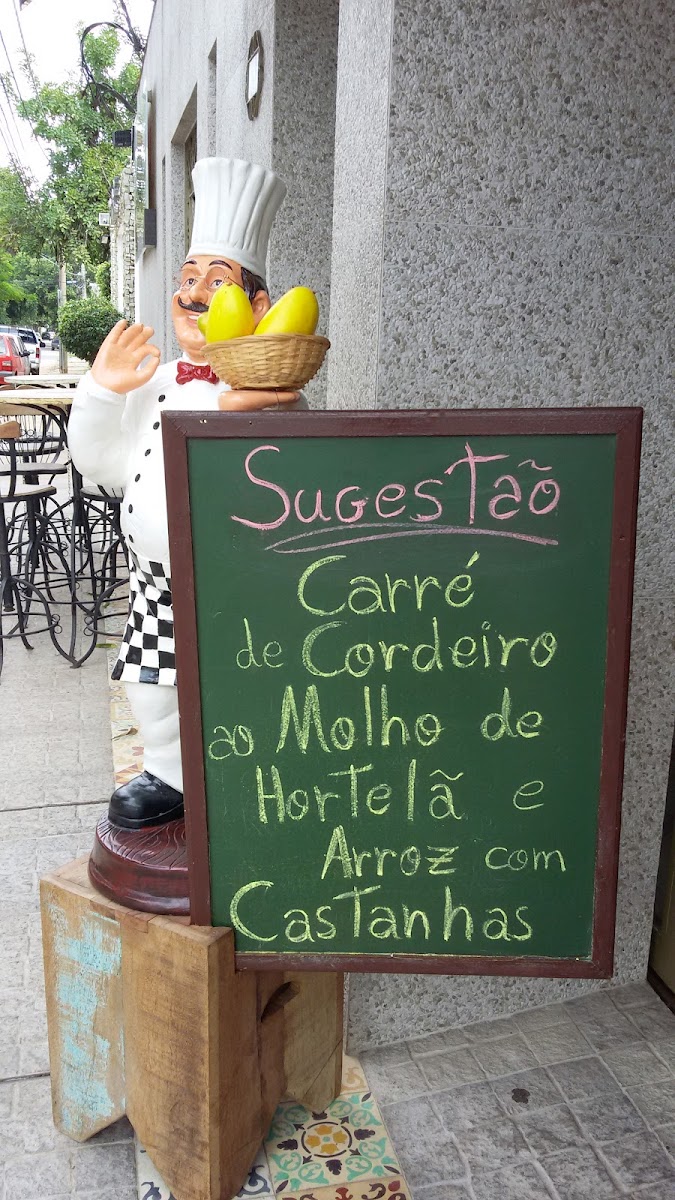 Sugestão
Carré
de Cordeiro
ao Molho de
Hortelã e
Arroz com
Castanhas